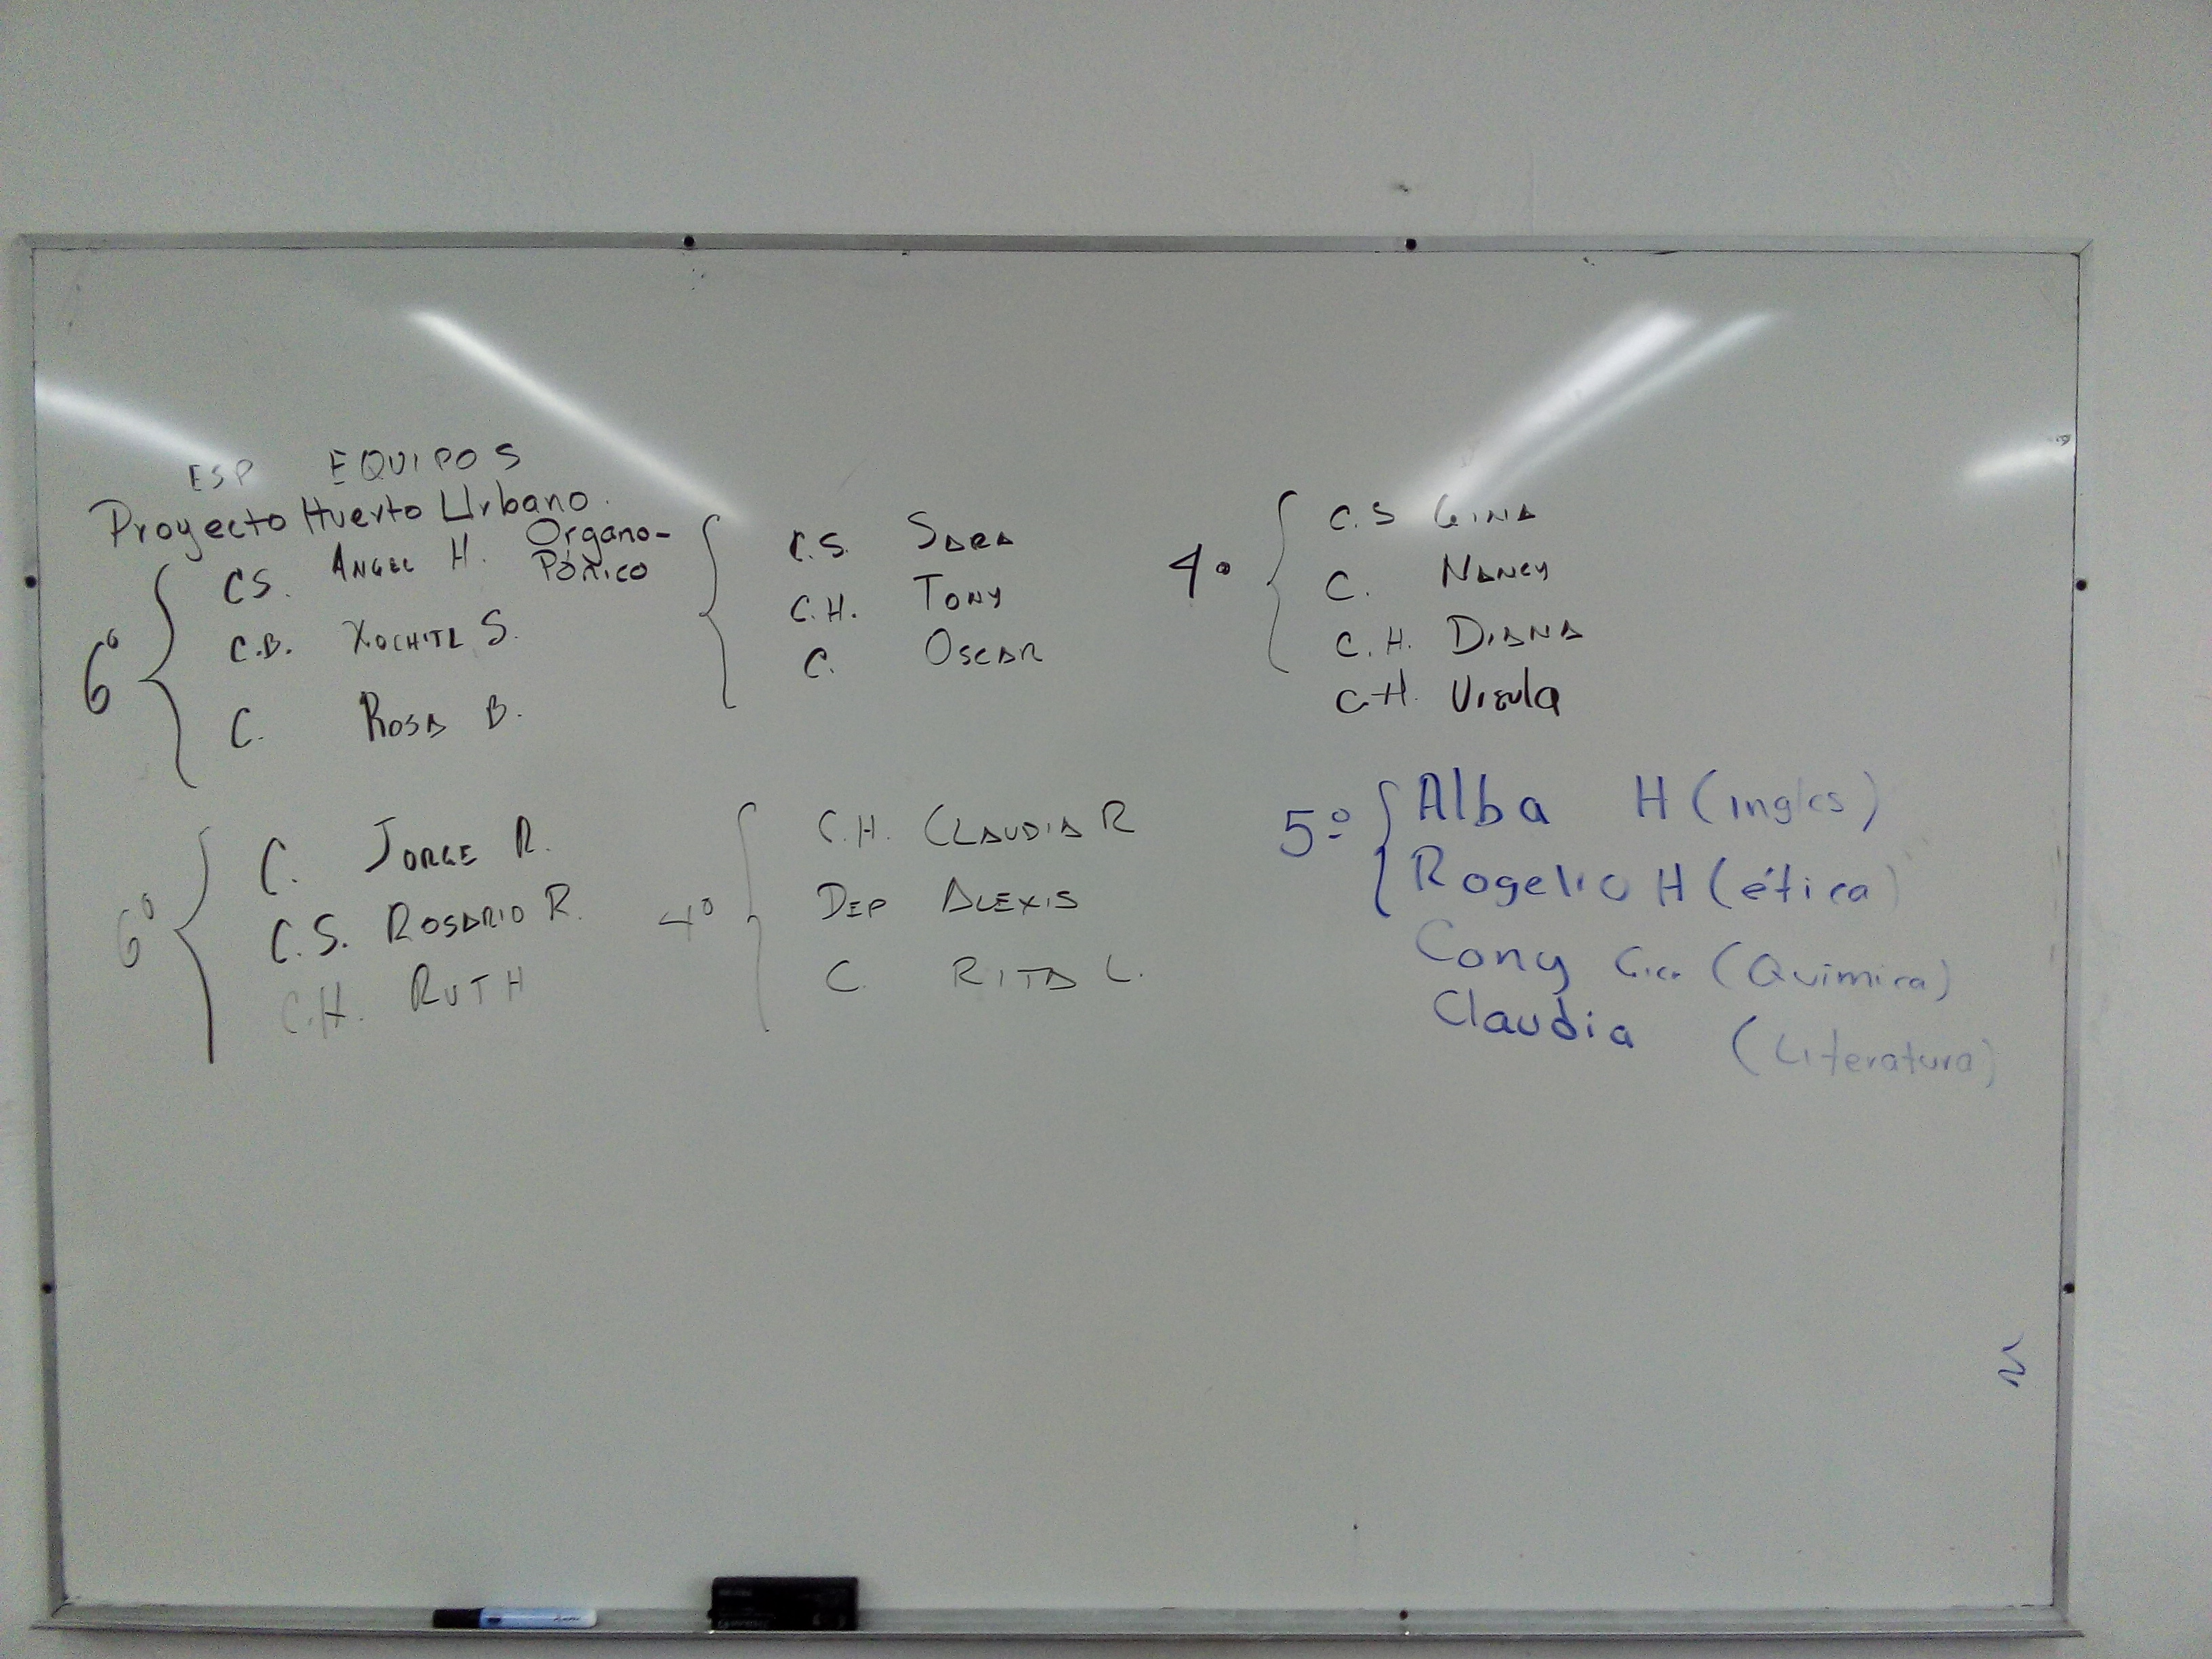 ESP EQUIPOS
Proyecto Huerto Urbano.
Organo-
Pónico
6°
CS. ANGEL H.
C.B. XOCHITL S.
C. ROSA B.
C.S. SARA
C.H. TONY
C. OSCAR
4°
C.S GINA
C. NANCY
C.H. DIANA
C.H. Ursula
6°
C. JORGE R.
C.S. ROSARIO R.
C.H. RUTH
4°
C.H. CLAUDIA R
DEP ALEXIS
C. RITA L.
5°
Alba H (ingles)
Rogelio H (ética)
Cony (Quimica)
Claudia (Literatura)